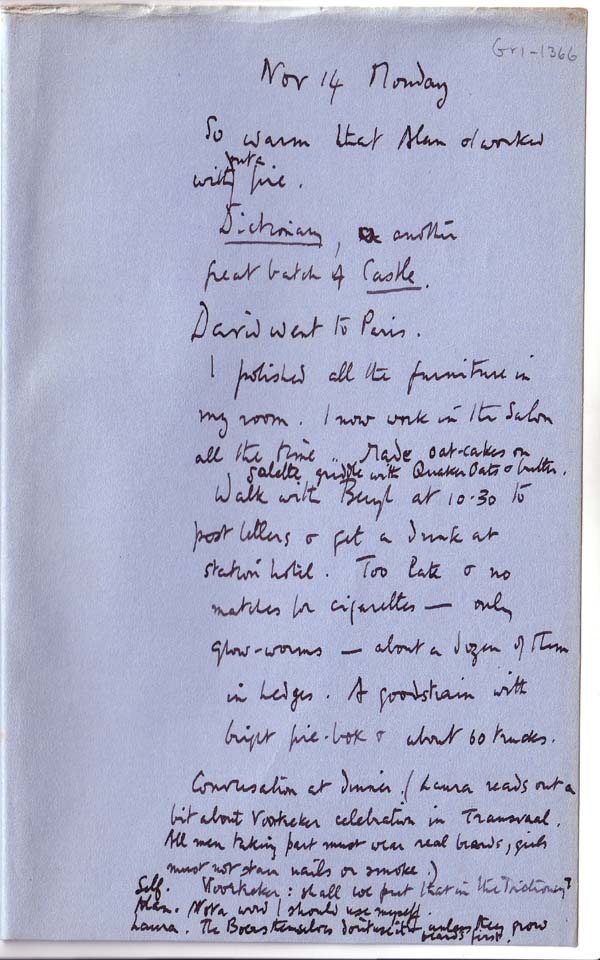 Gr1-1366
Nov 14 Monday
So warm that Alan & I worked
without a fire.
Dictionary, another
great batch of Castle.
David went to Paris.
I polished all the furniture in
my room. I now work in the Salon
all the time .. Made oat-cakes on
galette griddle with Quaker Oats & butter.
Walk with Beryl at 10.30 to
post letters & get a drink at
station hotel. Too late & no
matches for cigarettes — only
glow-worms — about a dozen of them
in hedges. A goodstrain with
bright fire-box & about 60 trucks.
Conversation at dinner. (Laura reads out a
bit about Voortreker celebration in Transvaal.
All men taking part must wear real beards, girls
must not stain nails or smoke.)
Self. Voortreker: shall we put that in the Dictionary?
Alan. Not a word I should use myself.
Laura. The Boers themselves dont use it unless they grow
beards first.